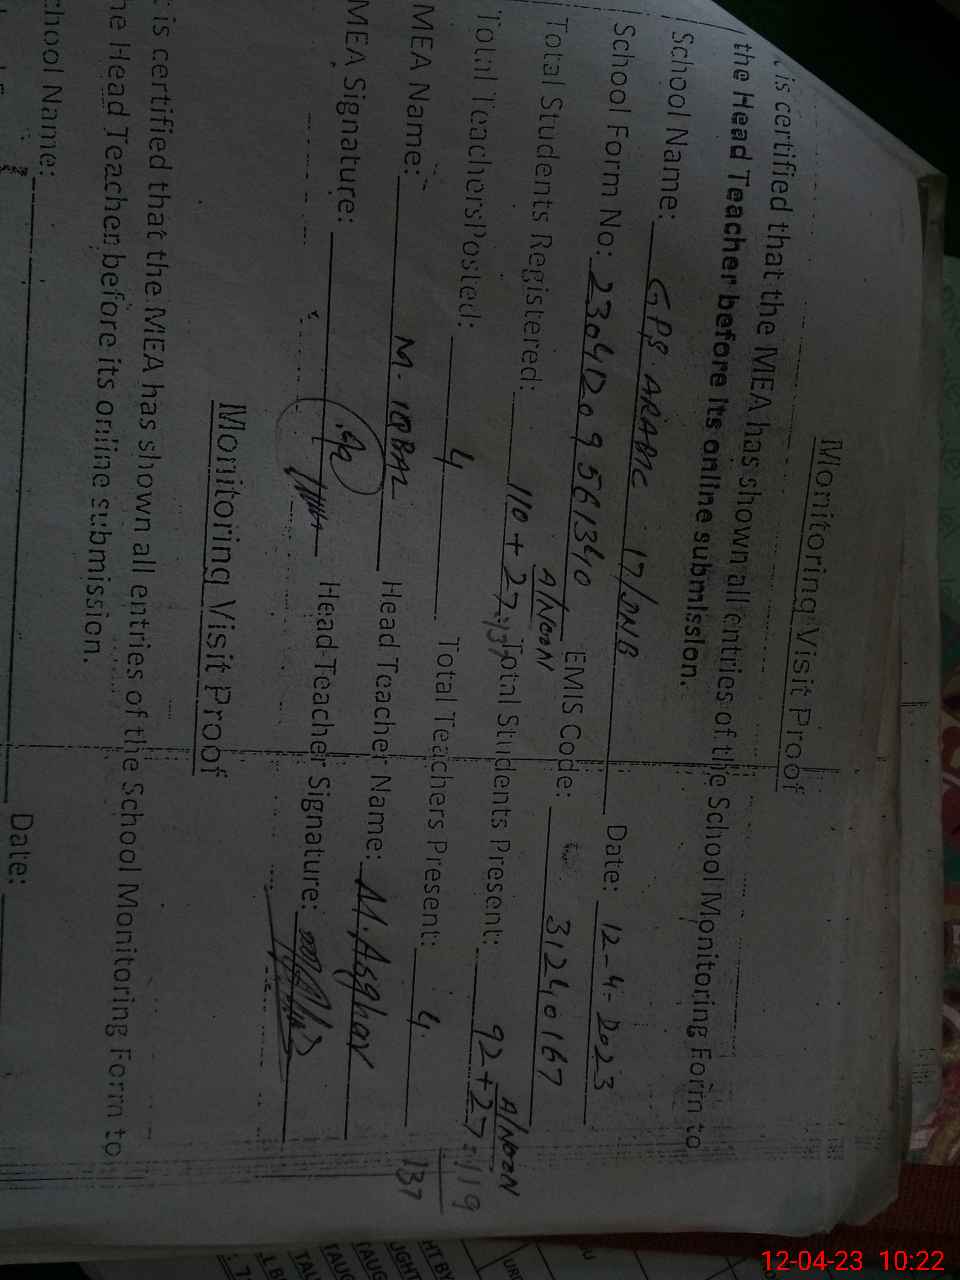 Monitoring Visit Proof
is certified that the MEA has shown all entries of the School Monitoring Form to
the Head Teacher before its online submission.
School Name: GPS ARABIC 17/DNB Date: 12-4-2023
School Form No: 23041209561340 EMIS Code: 31240167
A/NOON A/NOON
Total Students Registered: 110+27=137 Total Students Present: 92+27=119
137
Total Teachers Posted: 4 Total Teachers Present: 4
MEA Name: M. IQBAL Head Teacher Name: M. Asghar
MEA Signature: Head Teacher Signature:
Monitoring Visit Proof
is certified that the MEA has shown all entries of the School Monitoring Form to
he Head Teacher before its online submission.
chool Name: Date:
12-04-23 10:22